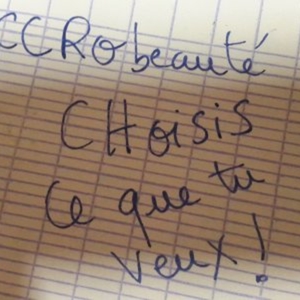 CCRObeauté
CHoisis
Ce que tu
veux!